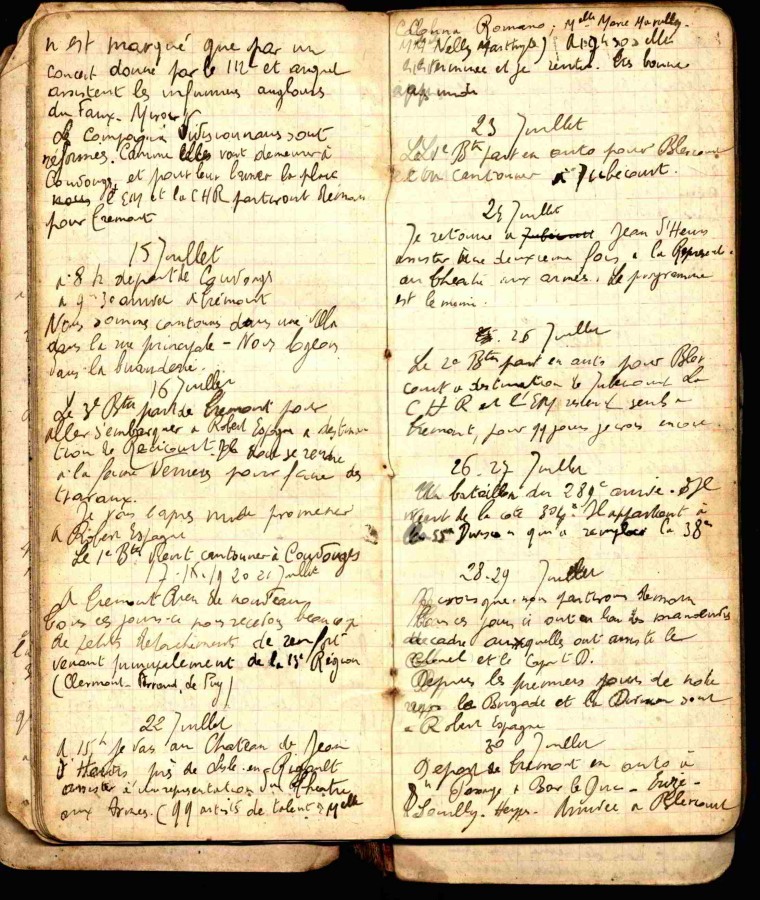 n'est marqué que par un
concert donné par le 112e et auquel
assistent les infirmières anglaises
du Faux-Miroir
Les Compagnies Divisionnaires sont
reformées. Comme elles vont demeurer à
Couvonges, et pour leur laisser la place
l'EM et la CHR partiront demain
pour Tremont
15 Juillet
à 8 h départ de Couvonges
à 9-30 arrivée à Trémont
Nous sommes cantonnés dans une villa
dans la rue principale - Nous logeons
dans la buanderie.
16 Juillet
Le 3e Bton part de Tremont pour
aller s'embarquer à Robert Espagne à destina
tion de Il doit se rendre
à la ferme pour faire des
travaux.
Je vais l'après midi promener
à Robert Espagne
Le 1e Bton vient cantonner à Couvonges
17-18-19 20 21 Juillet
A Tremont Rien de nouveau
Tous ces jours-ci nous recevons beaucoup
de petits détachements de renfort
venant principalement de la 13e Région
(Clermont-Ferrand, le Puy)
22 Juillet
A 15h je vais au Chateau de Jean
d'Heurs près de Lisle-en-Rigault
assister à une representation du Théatre
aux Armées. (qq artistes de talent: Melle
Colonna Romano; Melle Marie
Nelly Martyl) A 19h30 elle
est terminée et je rentre. Très bonne
après midi
23 Juillet
Le 1e Bton part en auto pour Blercourt
et va cantonner à Jubécourt.
25 Juillet
Je retourne à Jean d'Heurs
assister une deuxième fois, à la Représent.
au théatre aux armées. Le programme
est le meme.
26 Juillet
Le 2e Bton part en auto pour Bler
court à destination de Jubécourt La
CHR et l'EM restent seuls à
Tremont, pour qq jours je crois encore.
26-27 Juillet
Un bataillon du 289e arrive. Il
vient de la cote 304. Il appartient à
la 55e Division qui a remplacé la 38e
28-29 Juillet
Je crois que nous partirons demain
Tous ces jours ci ont eu lieu des manœuvres
de cadre auxquelles ont assisté le
Colonel et le Capt D.
Depuis les premiers jours de notre
repos la Brigade et la Division sont
à Robert Espagne
30 Juillet
Départ de Tremont en auto à
8h Passage à Bar le Duc - Erize -
Souilly - Heippes. Arrivée à Blercourt